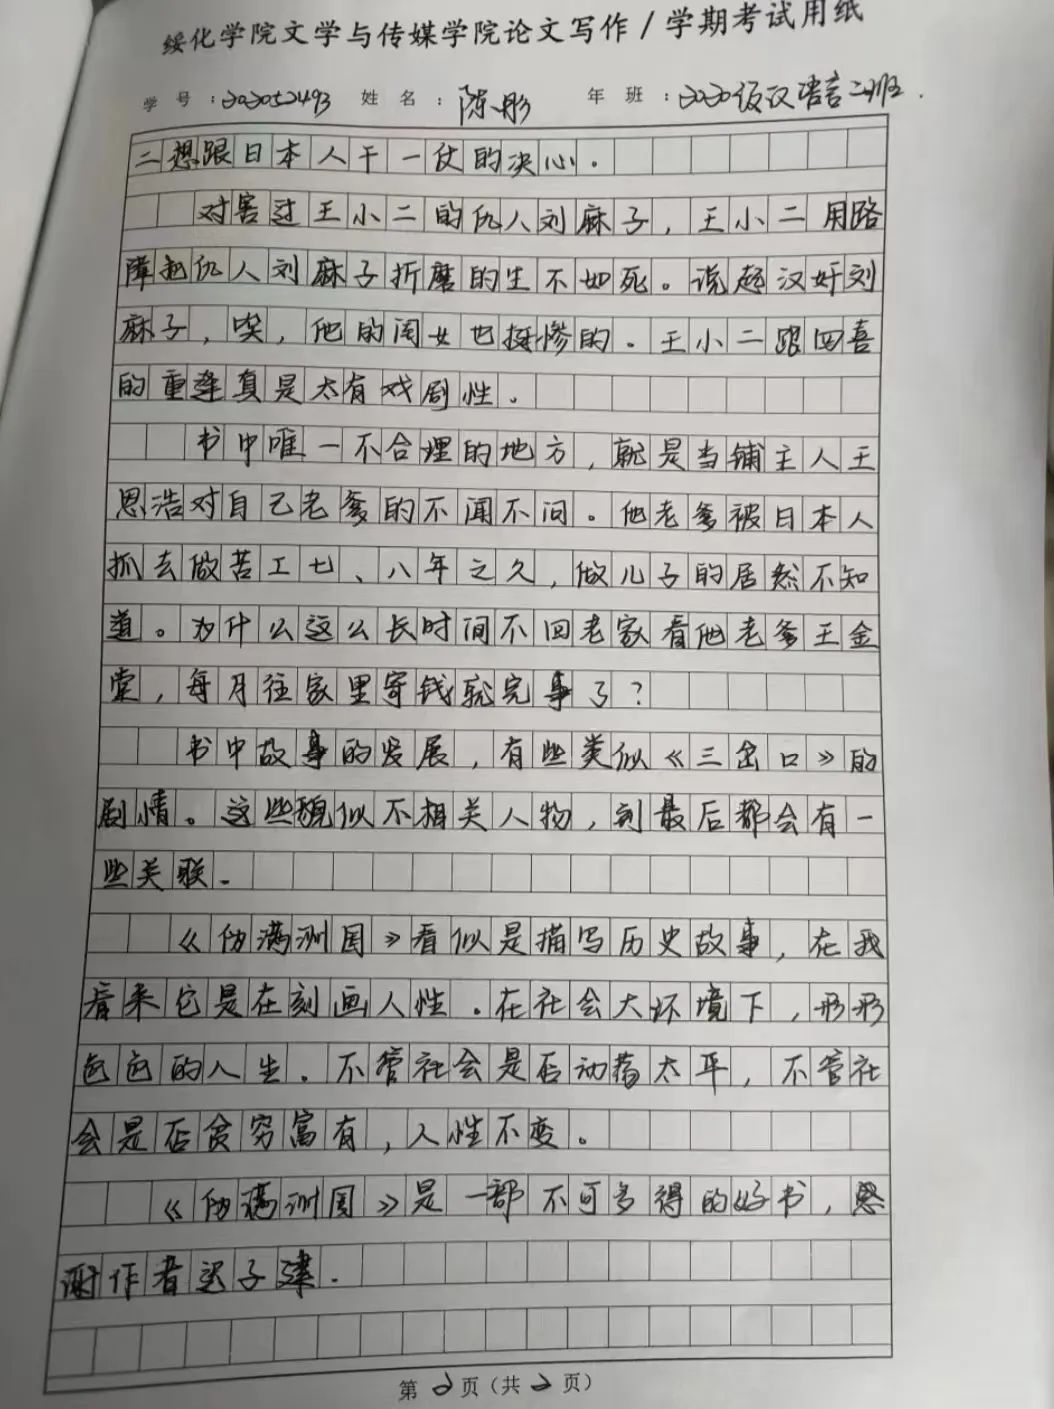 绥化学院文学与传媒学院论文写作/学期考试用纸
学号:202052493 姓名:陈彤 年班:2020级汉语言二班.
二想跟日本人干一仗的决心.
对害过王小二的仇人刘麻子,王小二用路
障把仇人刘麻子折磨的生不如死。说起汉奸刘
麻子,唉,他的闺女也挺惨的.王小二跟四喜
的重逢真是太有戏剧性.
书中唯一不合理的地方,就是当铺主人王
恩浩对自己老爹的不闻不问。他老爹被日本人
抓去做苦工七、八年之久,做儿子的居然不知
道。为什么这么长时间不回老家看他老爹王金
堂,每月往家里寄钱就完事了?
书中故事的发展,有些类似《三岔口》的
剧情。这些貌似不相关人物,到最后都会有一
些关联.
《伪满洲国》看似是描写历史故事,在我
看来它是在刻画人性.在社会大环境下,形形
色色的人生.不管社会是否动荡太平,不管社
会是否贪穷富有,人性不变。
《伪满洲国》是一部不可多得的好书,感
谢作者迟子建.
第2页(共2页)